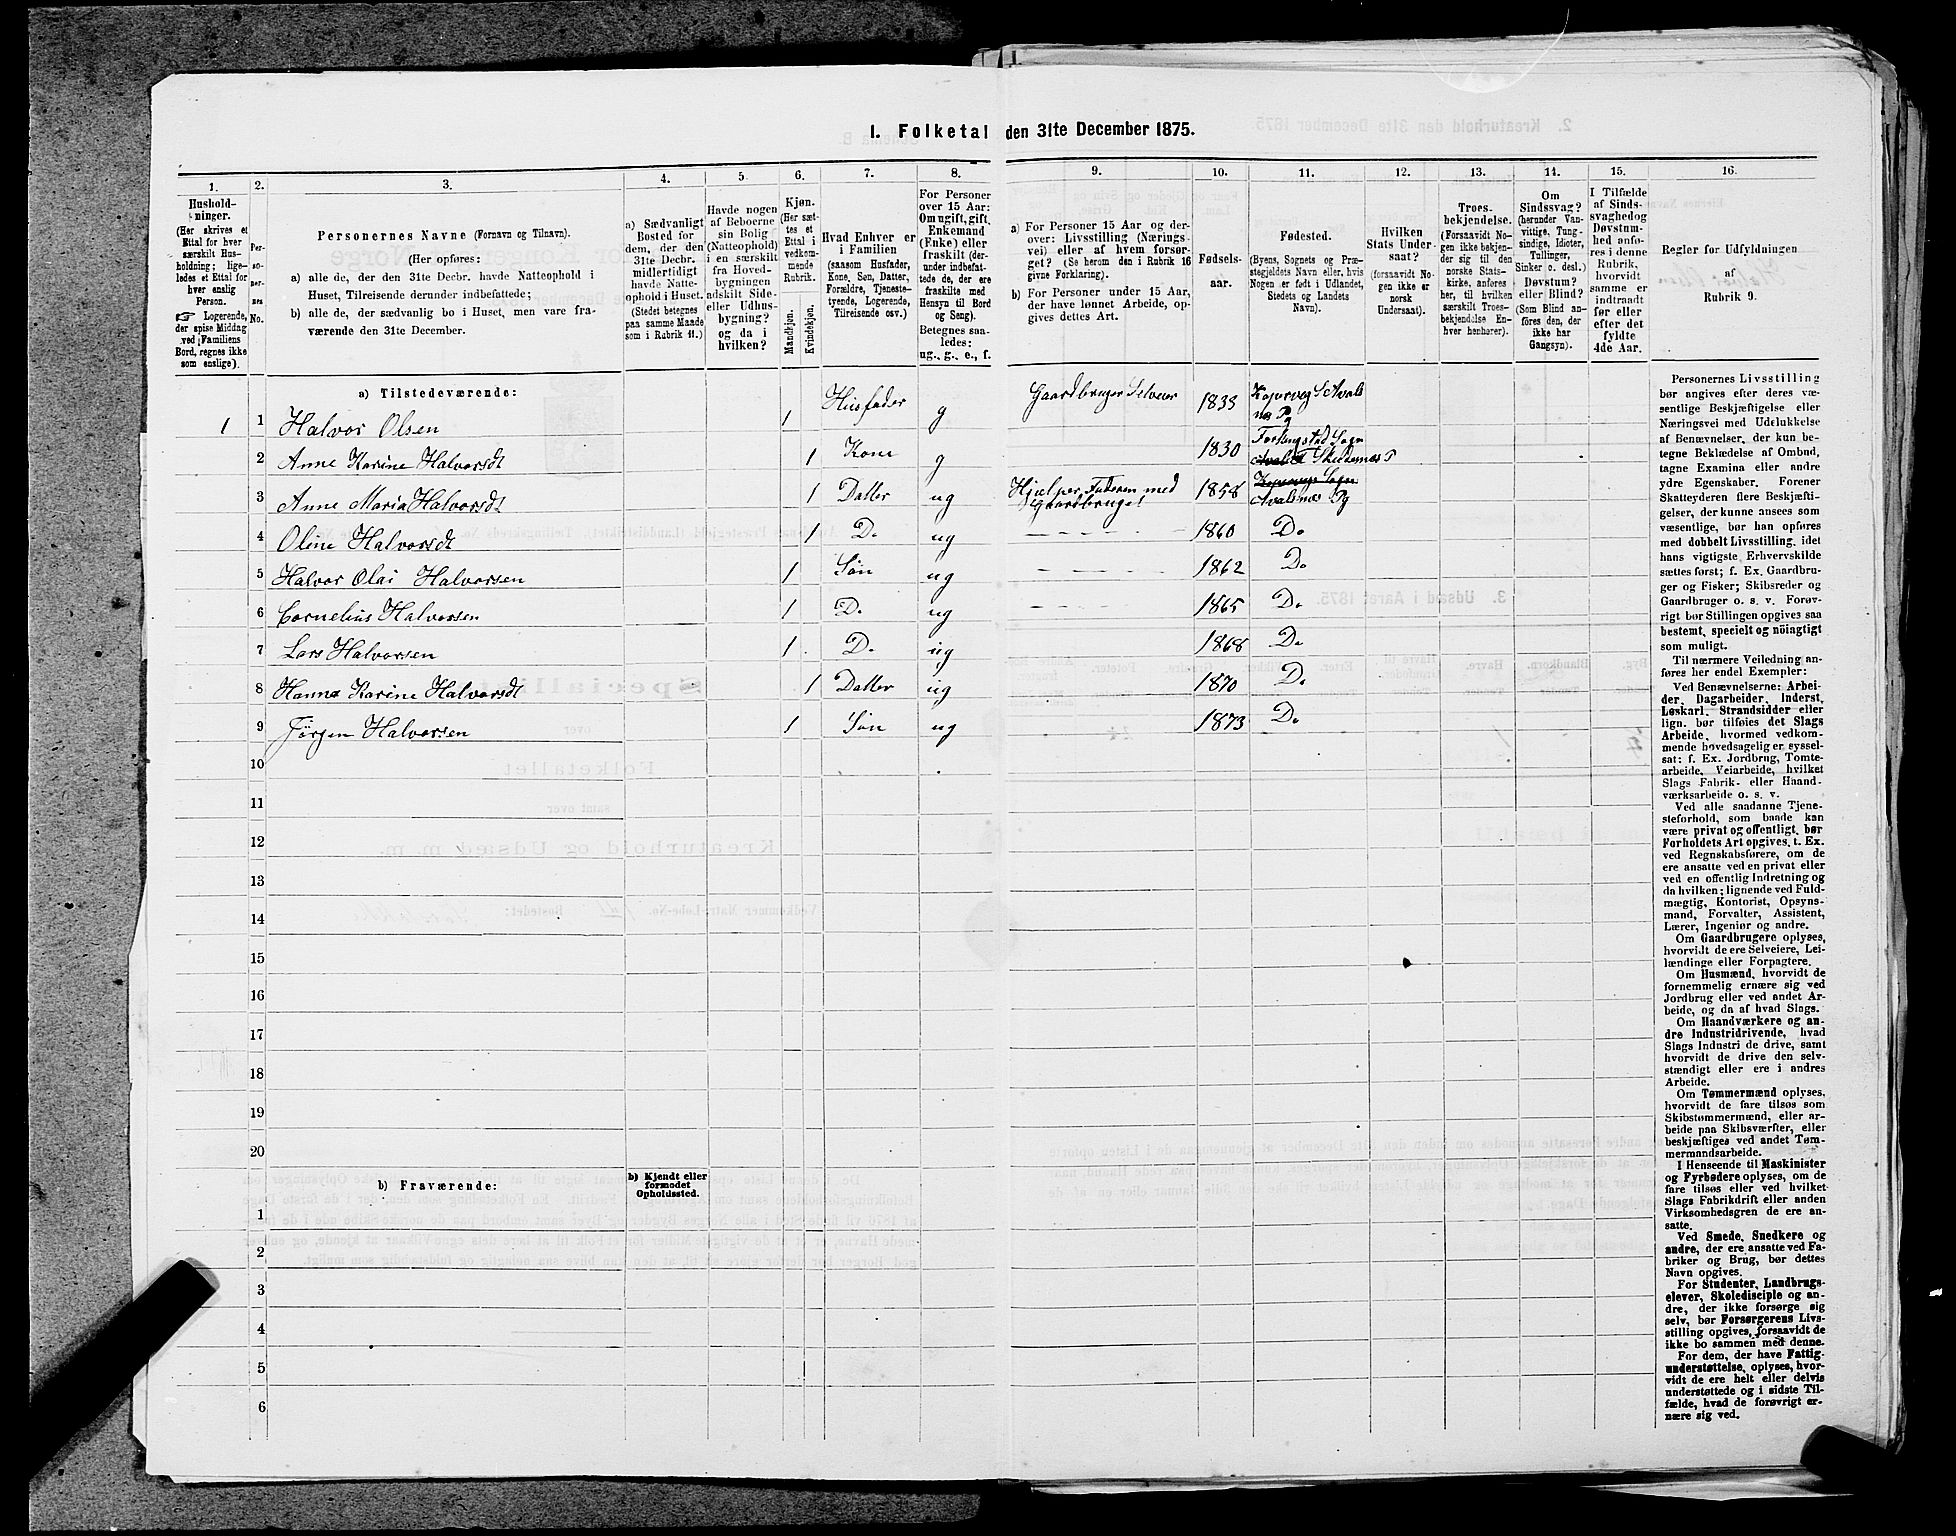 1. Folketal den 31te December 1875.
1. 2. 3. 4. 5. 6. 7. 8. 9. 10. 11. 12. 13. 14. 15. 16.
Hushold-
ninger.
(Her skrives et
Ettal for hver
særskilt Hus-
holdning; lige-
ledes et Ettal for
hver enslig
Person.
☞ Logerende,
der spise Middag
ved Familiens
Bord, regnes ikke
som enslige).
Per-
so-
ner-
nes
No.
Personernes Navne (Fornavn og Tilnavn).
(Her opføres:
a) alle de, der den 31te Decbr. havde Natteophold i
Huset, Tilreisende derunder indbefattede;
b) alle de, der sædvanlig bo i Huset, men vare fra-
værende den 31te December.
a) Sædvanligt
Bosted for
dem, der den
31te Decbr.
midlertidigt
havde Natte-
ophold i Huset.
(Stedet betegnes
paa samme Maade
som i Rubrik 11.)
Havde nogen
af Beboerne
sin Bolig
(Natteophold)
i en særskilt
fra Hoved-
bygningen
adskilt Side-
eller Udhus-
bygning?
og da i
hvilken?
Kjøn.
(Her sæt-
tes et
Ettal i
vedkom-
mende
Rubrik.
Mandkjøn.
Kvindekjøn.
Hvad Enhver er
i Familien
(saasom Husfader,
Kone, Søn, Datter,
Forældre, Tjeneste-
tyende, Logerende,
Tilreisende osv.)
For Personer
over 15 Aar:
Om ugift, gift,
Enkemand
(Enke) eller
fraskilt (der-
under indbefat-
tede de, der ere
fraskilte med
Hensyn til Bord
og Seng).
Betegnes saa-
ledes:
ug., g., e., f.
a) For Personer 15 Aar og der-
over: Livsstilling (Nærings-
vei) eller af hvem forsør-
get? (Se herom den i Rubrik 16
givne Forklaring).
b) For Personer under 15 Aar,
der have lønnet Arbeide, op-
gives dettes Art.
Fødsels-
aar.
Fødested.
(Byens, Sognets og Præ-
stegjeldets Navn eller, hvis
Nogen er født i Udlandet,
Stedets og Landets
Navn).
Hvilken
Stats Under-
saat?
(forsaavidt No-
gen ikke er
norsk
Undersaat).
Troes-
bekjendelse.
(Forsaavidt No-
gen ikke bekjen-
der sig til den
norske Stats-
kirke, anføres
her, til hvilken
særskilt Troes-
bekjendelse En-
hver henhører).
Om
Sindssvag?
(herunder Van-
vittige, Tung-
sindige, Idioter,
Tullinger,
Sinker o. desl.)
Døvstum?
eller Blind?
(Som Blind an-
føres den, der
ikke har
Gangsyn).
I Tilfælde
af Sinds-
svaghed og
Døvstum-
hed anfø-
res i denne
Rubrik,
hvorvidt
samme er
indtraadt
før eller
efter det
fyldte
4de Aar.
Regler for Udfyldningen
af
Rubrik 9.
a) Tilstedeværende:
1 1 Halvor Olsen 1 Husfader g Gaardbruger Selveier 1833
2 Anne Karine Halvorsdt 1 Kone g 1830
3 Anne Maria Halvorsdt 1 Datter ug Hjælper Faderen med Gaardbruget 1858 Avalsnæs Pg
4 Oline Halvorsdt 1 Do ug — — — 1860 Do
5 Halvor Olai Halvorsen 1 Søn ug 1862 Do
6 Cornelius Halvorsen 1 Do ug — — — 1865 Do
7 Lars Halvorsen 1 Do ug 1868 Do
8 Hanna Karine Halvorsdt 1 Datter ug 1870 Do
9 Jørgen Halvorsen 1 Søn ug 1873 Do
10
11
12
13
14
15
16
17
18
19
20
b) Fraværende:
b) Kjendt eller
formodet
Opholdssted.
1
2
3
4
5
6
Personernes Livsstilling
bør angives efter deres væ-
sentlige Beskjæftigelse eller
Næringsvei med Udelukkelse
af Benævnelser, der kun be-
tegne Beklædelse af Ombud,
tagne Examina eller andre
ydre Egenskaber. Forener
Skatteyderen flere Beskjæfti-
gelser, der kunne ansees som
væsentlige, bør han opføres
med dobbelt Livsstilling, idet
hans vigtigste Erhvervskilde
sættes først; f. Ex. Gaardbru-
ger og Fisker; Skibsreder og
Gaardbruger o. s. v. Forøv-
rigt bør Stillingen opgives saa
bestemt, specielt og nöiagtigt
som muligt.
Til nærmere Veiledning an-
føres her endel Exempler:
Ved Benævnelserne: Arbei-
der, Dagarbeider, Inderst,
Løskarl, Strandsidder eller
lign. bør tilføies det Slags
Arbeide, hvormed vedkom-
mende hovedsagelig er syssel-
sat: f. Ex. Jordbrug, Tomte-
arbeide, Veiarbeide, hvilket
Slags Fabrik- eller Haand-
værksarbeide o. s. v.
Ved alle saadanne Tjene-
steforhold, som baade kan
være privat og offentligt, bør
Forholdets Art opgives, t. Ex.
ved Regnskabsførere, om de
ere ansatte ved en privat eller
ved en offentlig Indretning og
da hvilken; lignende ved Fuld-
mægtig, Kontorist, Opsyns-
mand, Forvalter, Assistent,
Lærer, Ingeniør og andre.
Om Gaardbrugere oplyses,
hvorvidt de ere Selveiere, Lei-
lændinge eller Forpagtere.
Om Husmænd, hvorvidt de
fornemmelig ernære sig ved
Jordbrug eller ved andet Ar-
beide, og da af hvad Slags.
Om Haandværkere og an-
dre Industridrivende, hvad
Slags Industri de drive, samt
hvorvidt de drive den selv-
stændigt eller ere i andres
Arbeide.
Om Tømmermænd oplyses,
hvorvidt de fare tilsøs som
Skibstømmermænd, eller ar-
beide paa Skibsværfter, eller
beskjæftiges ved andet Tøm-
mermandsarbeide.
I Henseende til Maskinister
og Fyrbødere oplyses, om de
fare tilsøs eller ved hvilket
Slags Fabrikdrift eller anden
Virksomhedsgren de ere an-
satte.
Ved Smede, Snedkere og
andre, der ere ansatte ved Fa-
briker og Brug, bør dettes
Navn opgives.
For Studenter, Landbrugs-
elever, Skoledisciple og an-
dre, der ikke forsørge sig
selv, bør Forsørgerens Livs-
stilling opgives, forsaavidt de
ikke bo sammen med denne.
For dem, der have Fattig-
understøttelse, oplyses, hvor-
vidt de ere helt eller delvis
understøttede og i sidste Til-
fælde, hvad de forøvrigt er-
nære sig ved.